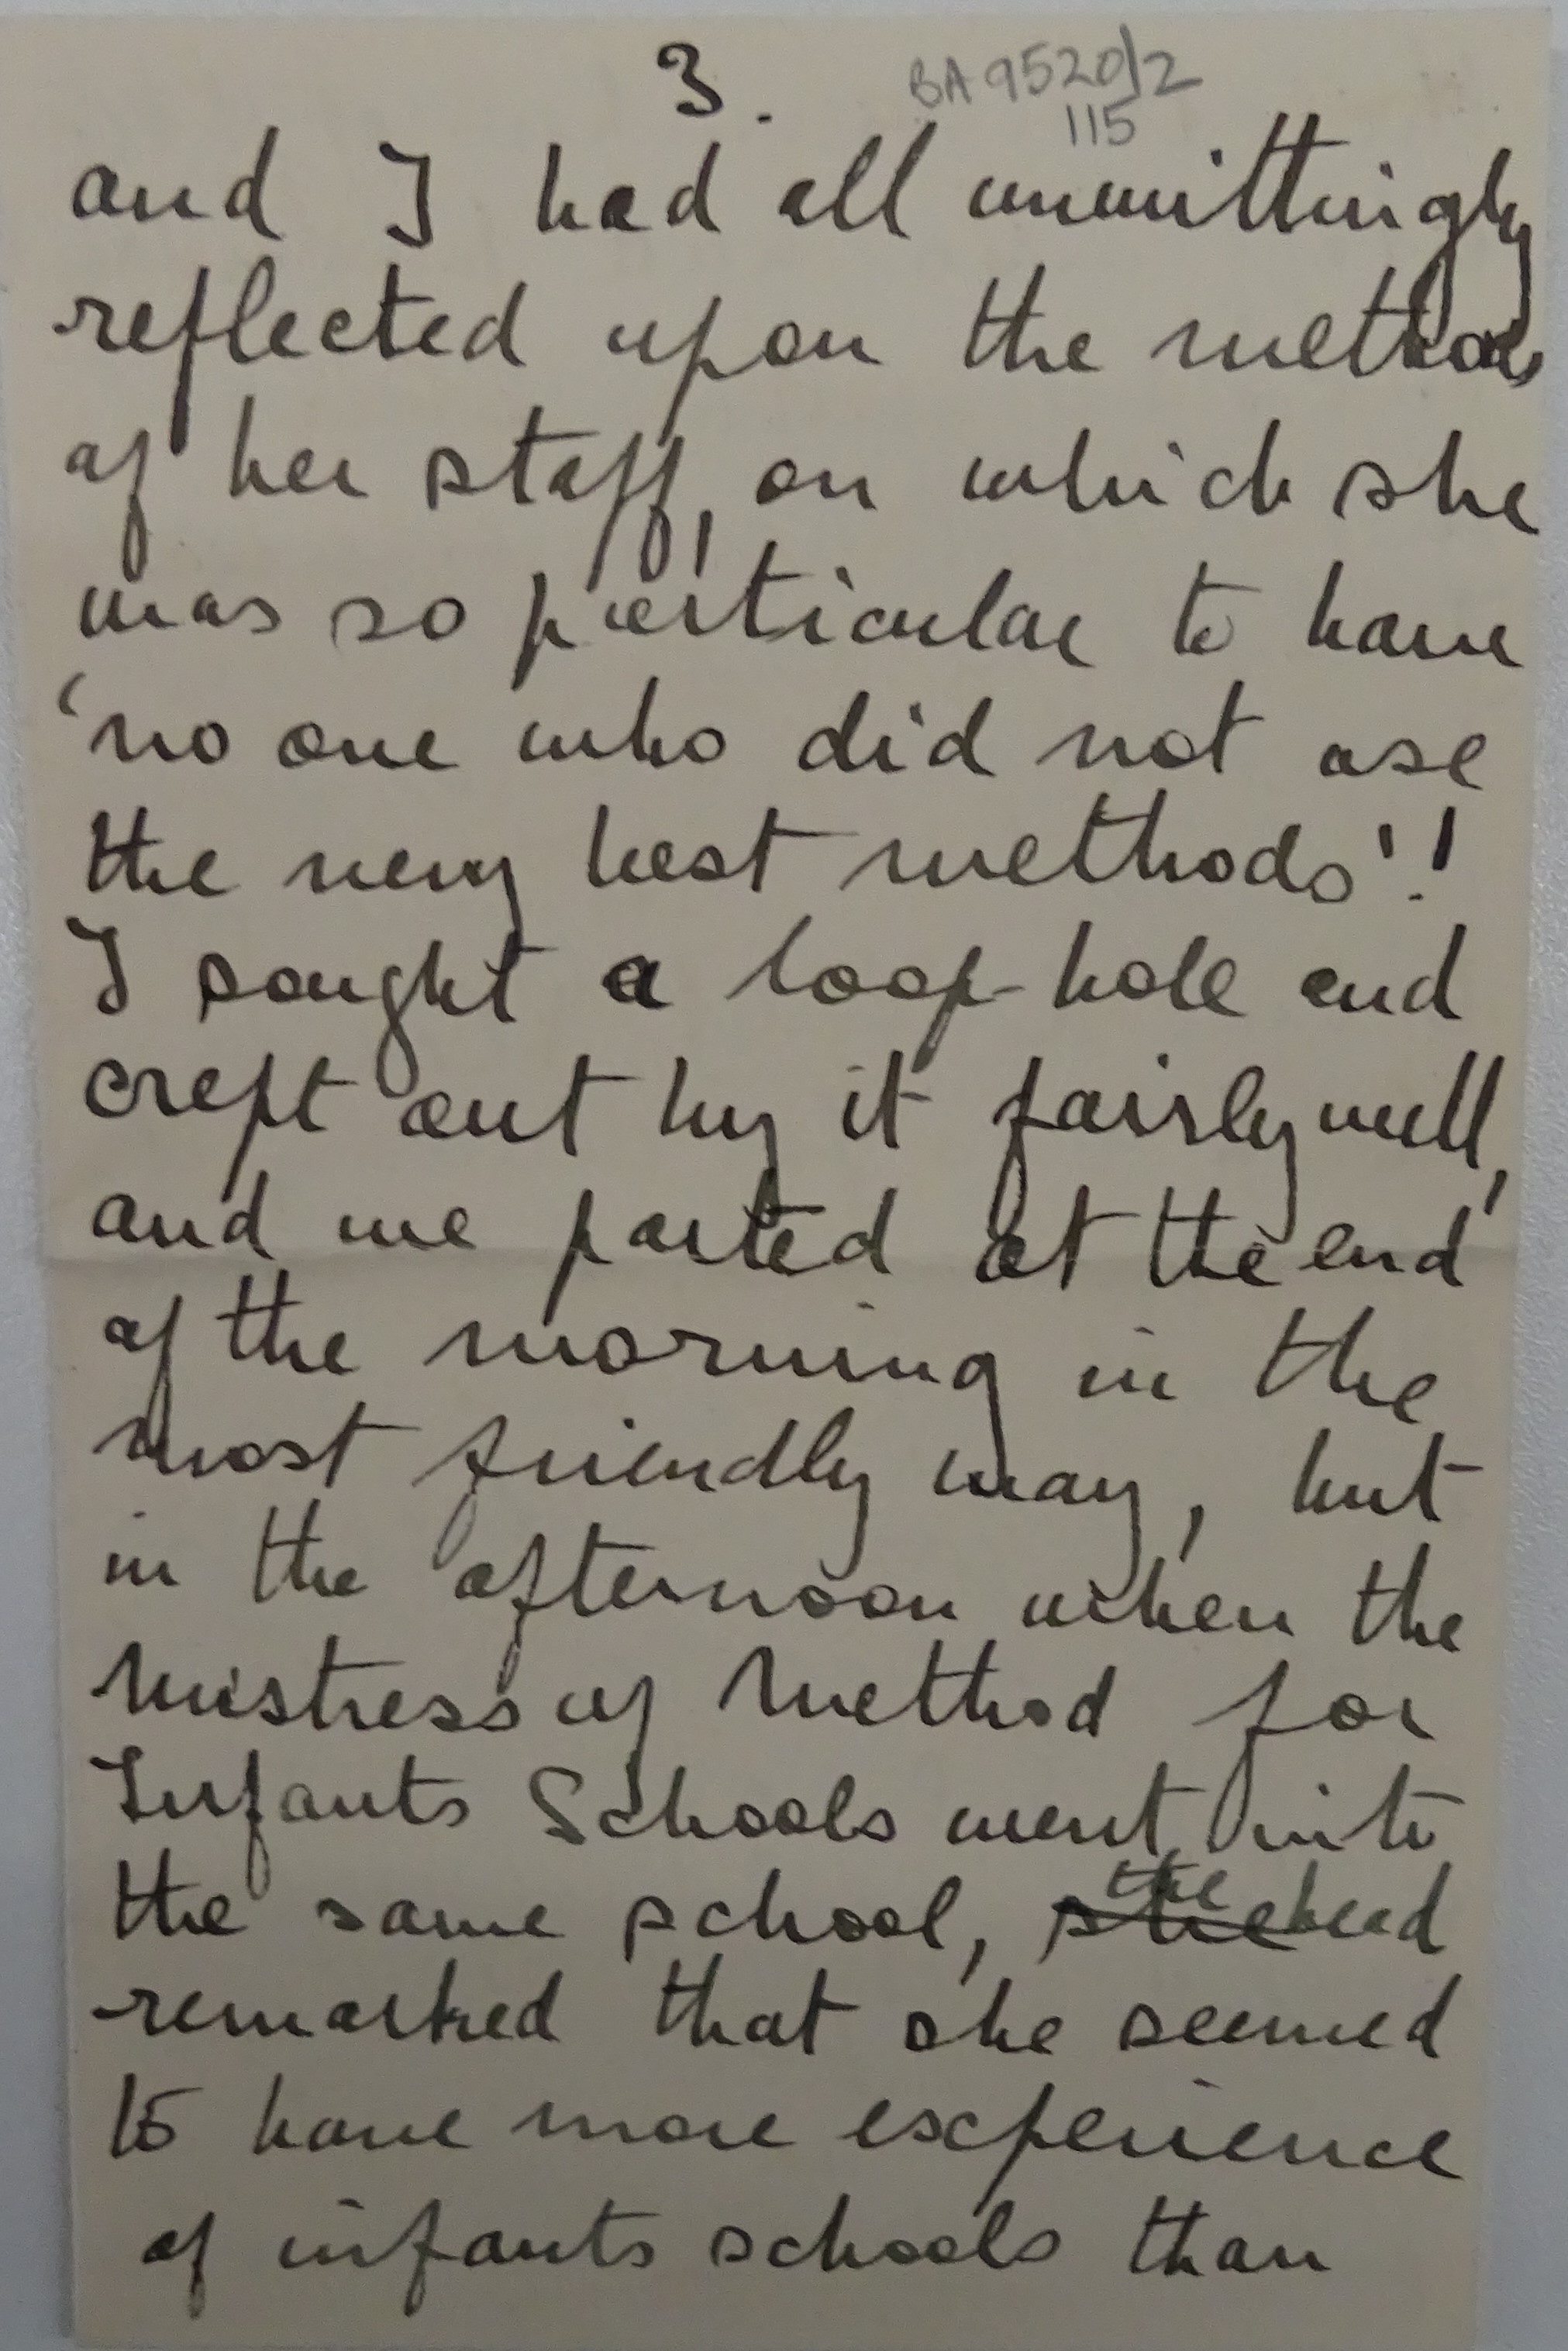 3.
BA 9520/2
115
and I had all unwittingly
reflected upon the methods
of her staff, on which she
was so particular to have
'no one who did not use
the very best methods'!
I sought a loop-hole and
crept out by it fairly well,
and we parted at the end
of the morning in the
most friendly way, but
in the afternoon when the
Mistress of Method for
Infants Schools went into
the same school, she the head
remarked that she seemed
to have more experience
of infants schools than